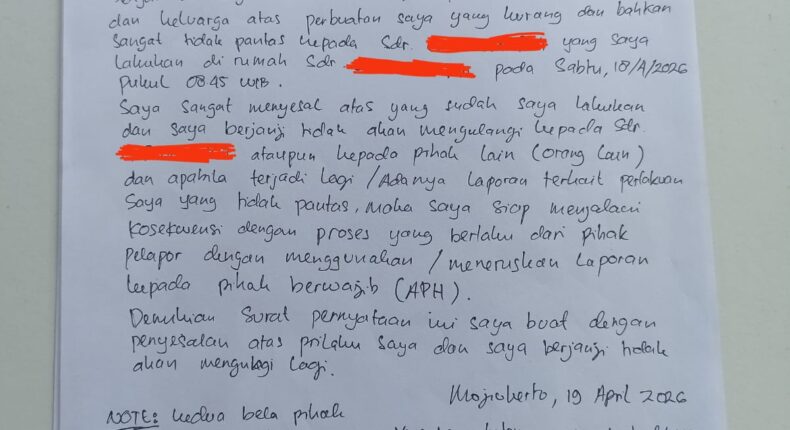 dan keluarga atas perbuatan saya yang kurang dan bahkan
sangat tidak pantas kepada Sdr. yang saya
lakukan di rumah Sdr. pada Sabtu, 18/A/2026
pukul 08.45 WIB.
Saya sangat menyesal atas yang sudah saya lakukan
dan saya berjanji tidak akan mengulangi kepada Sdr.
ataupun kepada pihak lain (orang lain)
dan apabila terjadi lagi / Adanya laporan terkait perlakuan
Saya yang tidak pantas, maka saya siap menjalani
Kosekwensi dengan proses yang berlaku dari pihak
pelapor dengan menggunakan / meneruskan laporan
kepada pihak berwajib (APH).
Demikian surat pernyataan ini saya buat dengan
penyesalan atas prilaku saya dan saya berjanji tidak
akan mengulagi lagi.
Mojokerto, 19 April 2026
NOTE: kedua bela pihak